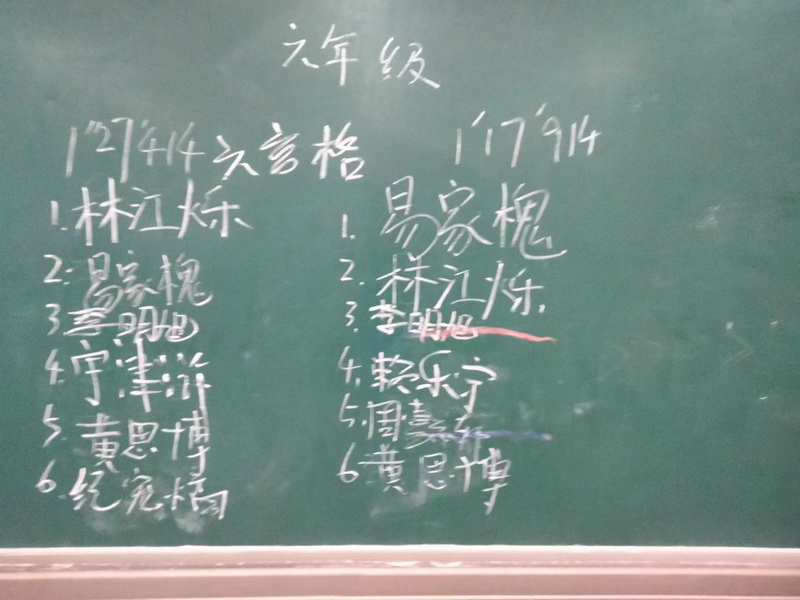 六年级
1"27'414 六宫格
1.林江烁
2.易家槐
3 李明旭
4.宇津
5.黄思博
6.纪宛
1'17'914
1.易家槐
2.林江烁
3.李明旭
4.赖乐宁
5.周豪轩
6 黄思博